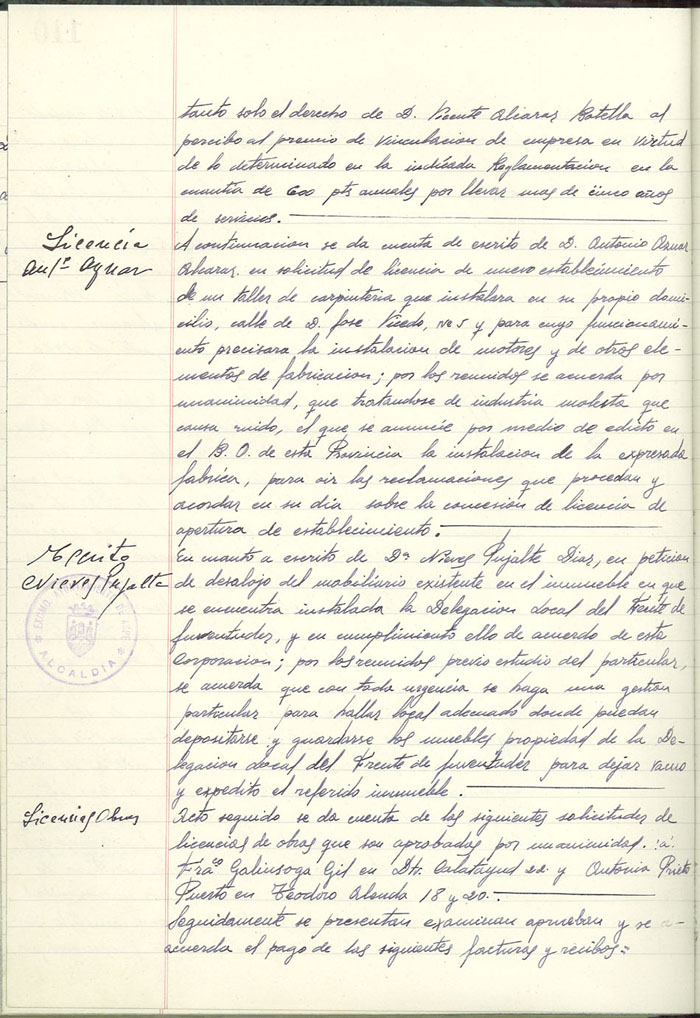 tanto solo el derecho de D. Vicente Alcaraz Botella al
percibo al premio de vinculacion de empresa en virtud
de lo determinado en la indicada Reglamentacion en la
cuantia de 600 pts anuales por llevar mas de cinco años
de servicios.
Licencia
Antº Aznar
A continuacion se da cuenta de escrito de D. Antonio Aznar
Alcaraz en solicitud de licencia de nuevo establecimiento
de un taller de carpinteria que instalara en su propio domi-
cilio, calle de D. Jose Vicedo, nº 5 y para cuyo funcionami-
ento precisara la instalacion de motores y de otros ele-
mentos de fabricacion; por los reunidos se acuerda por
unanimidad, que tratandose de industria molesta que
causa ruido, el que se anuncie por medio de edicto en
el B.O. de esta Provincia la instalacion de la expresada
fabrica, para oir las reclamaciones que procedan y
acordar en su dia sobre la concesion de licencia de
apertura de establecimiento.
Escrito
Nieves Pujalte
En cuanto a escrito de Dª Nieves Pujalte Diaz, en peticion
de desalojo del mobiliario existente en el inmueble en que
se encuentra instalada la Delegacion Local del Frente de
Juventudes, y en cumplimiento ello de acuerdo de esta
Corporacion; por los reunidos previo estudio del particular,
se acuerda que con toda urgencia se haga una gestion
particular para hallar local adecuado donde puedan
depositarse y guardarse los muebles propiedad de la De-
legacion Local del Frente de Juventudes para dejar vacuo
y expedito el referido inmueble.
ALCALDIA
Licencias Obras
Acto seguido se da cuenta de las siguientes solicitudes de
licencias de obras que son aprobadas por unanimidad: a:
Frasº Galinsoga Gil en Dr. Calatayud 22 y Antonia Prieto
Puerto en Teodoro Alenda 18 y 20.
Seguidamente se presentan examinan aprueban y se a-
acuerda el pago de las siguientes facturas y recibos=
110